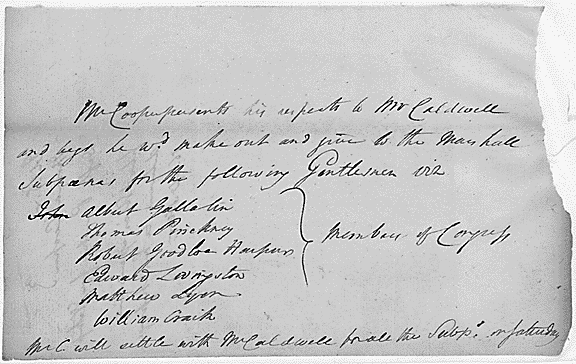 Mr Cooper presents his respects to Mr Caldwell
and begs he wd make out and give to the Marshall
Subpœnas for the following Gentlemen viz
John Albert Gallatin
Thomas Pinckney
Robert Goodloe Harper
Edward Livingston
Matthew Lyon
William Craik
Members of Congress
Mr C. will settle with Mr Caldwell for all the Subps. on Saturday